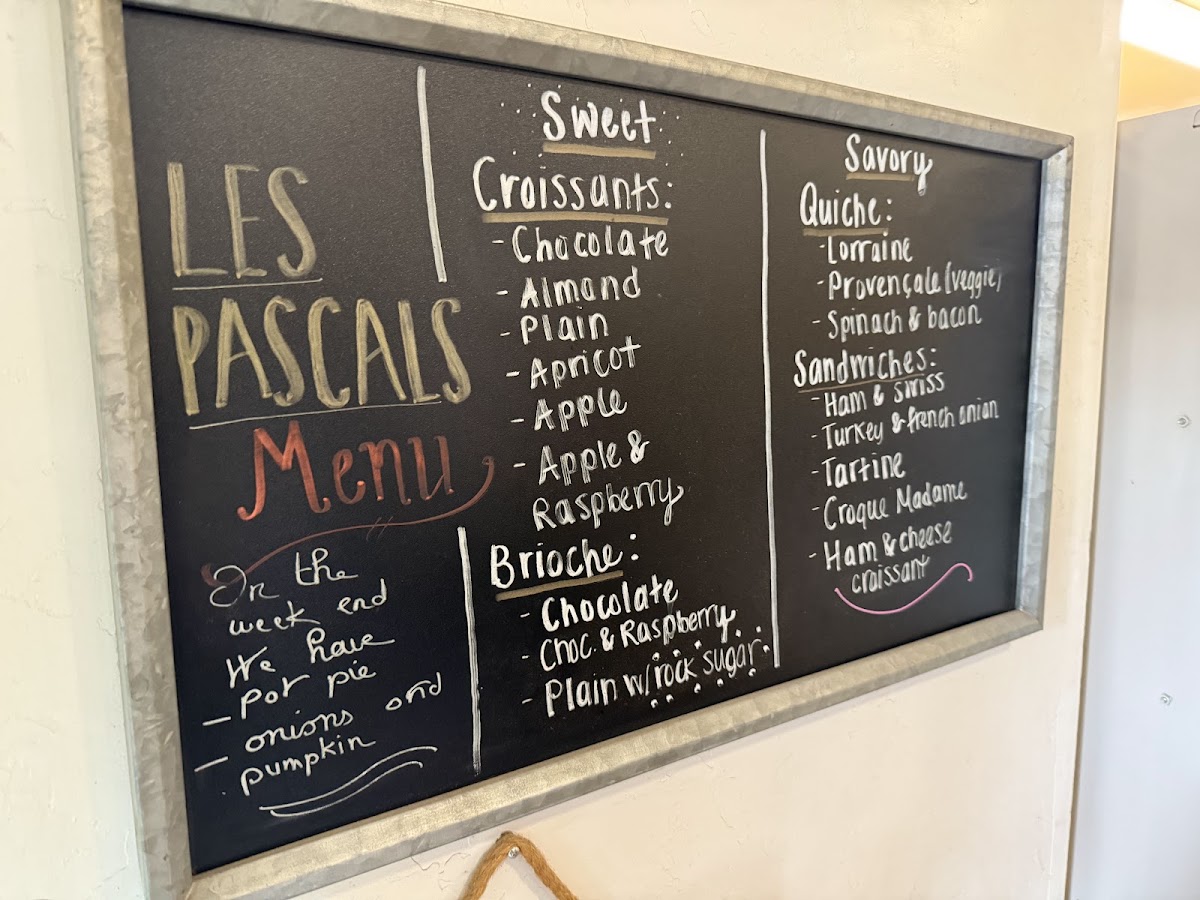 LES
PASCALS
Menu
On the
week end
We have
- pot pie
- onions and
pumpkin
Sweet
Croissants:
- Chocolate
- Almond
- Plain
- Apricot
- Apple
- Apple &
Raspberry
Brioche:
- Chocolate
- Choc. & Raspberry
- Plain w/rock sugar
Savory
Quiche:
- Lorraine
- Provençale (veggie)
- Spinach & bacon
Sandwiches:
- Ham & swiss
- Turkey & french onion
- Tartine
- Croque Madame
- Ham & cheese
croissant